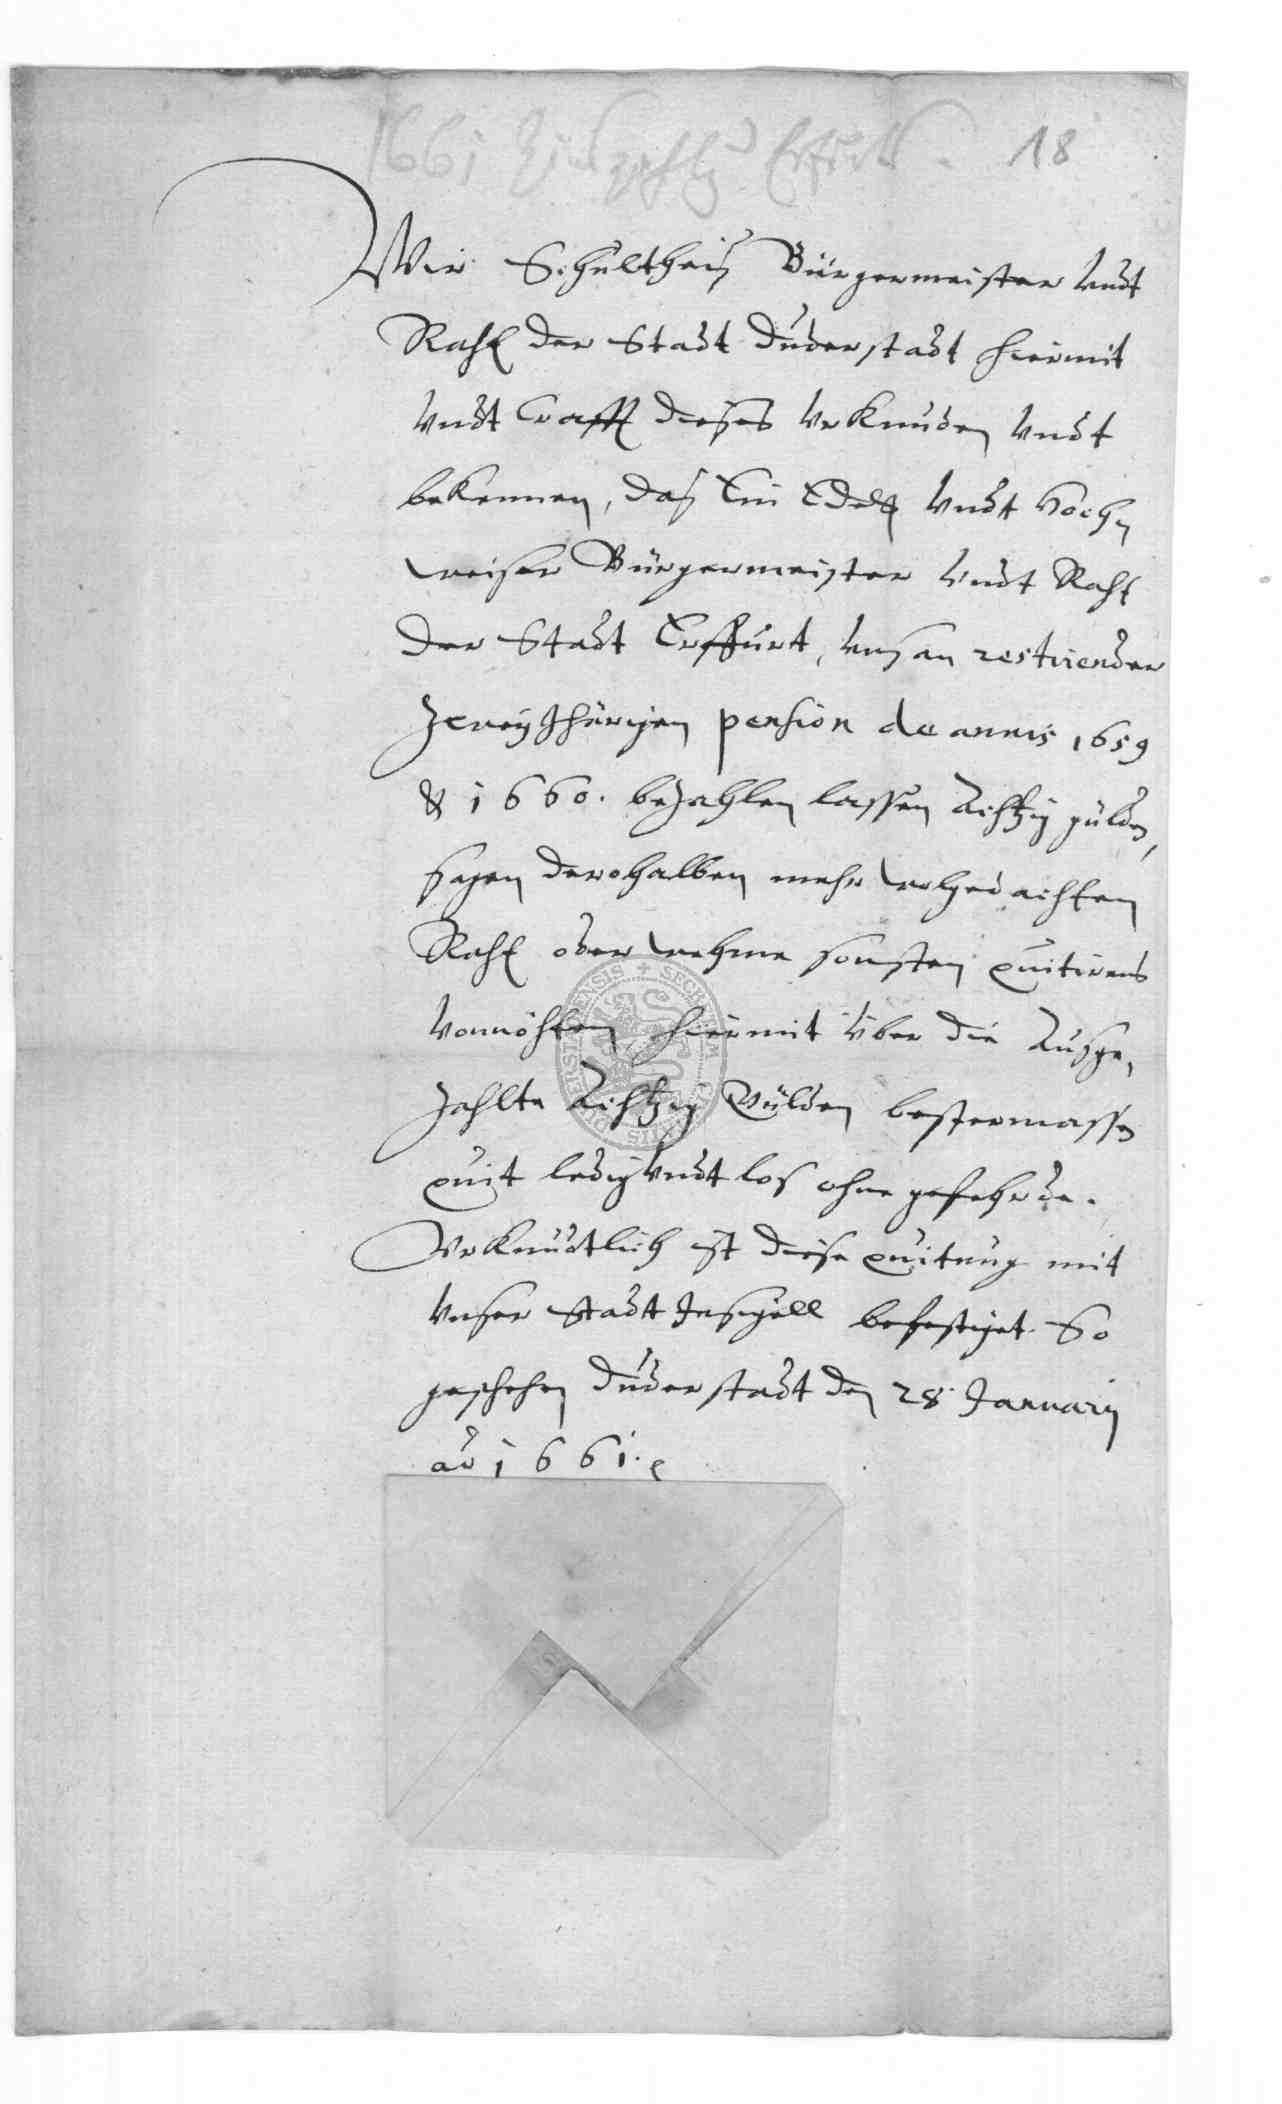 1661 Zinszahlung Erfurt. 18
Wir Schultheis Bürgermeister vndt
Raht der Stadt Duderstadt hiermit
vndt Crafft dieses vrKunden vndt
beKennen, das Ein Edell vndt Hoch
weiser Bürgermeister vndt Raht
der Stadt Erffurt, vns an restirender
Zweyjhärigen pension de annis 1659
& 1660. bezahlen lassen Achtzig gülden,
sagen derohalben mehr wolgedachten
Raht oder wehme sonsten quitirens
vonnöhten hiermit über die Ausge,
zahlte Achtzig Gülden bestermassen
quit ledig vndt los ohne gefehrde.
VrKundtlich ist diese quitung mit
vnser Stadt Insigell befestiget. So
geschehen Duderstadt den 28 Januarij
ao 1661.
DUDERSTADENSIS + SECRETUM CIVITATIS